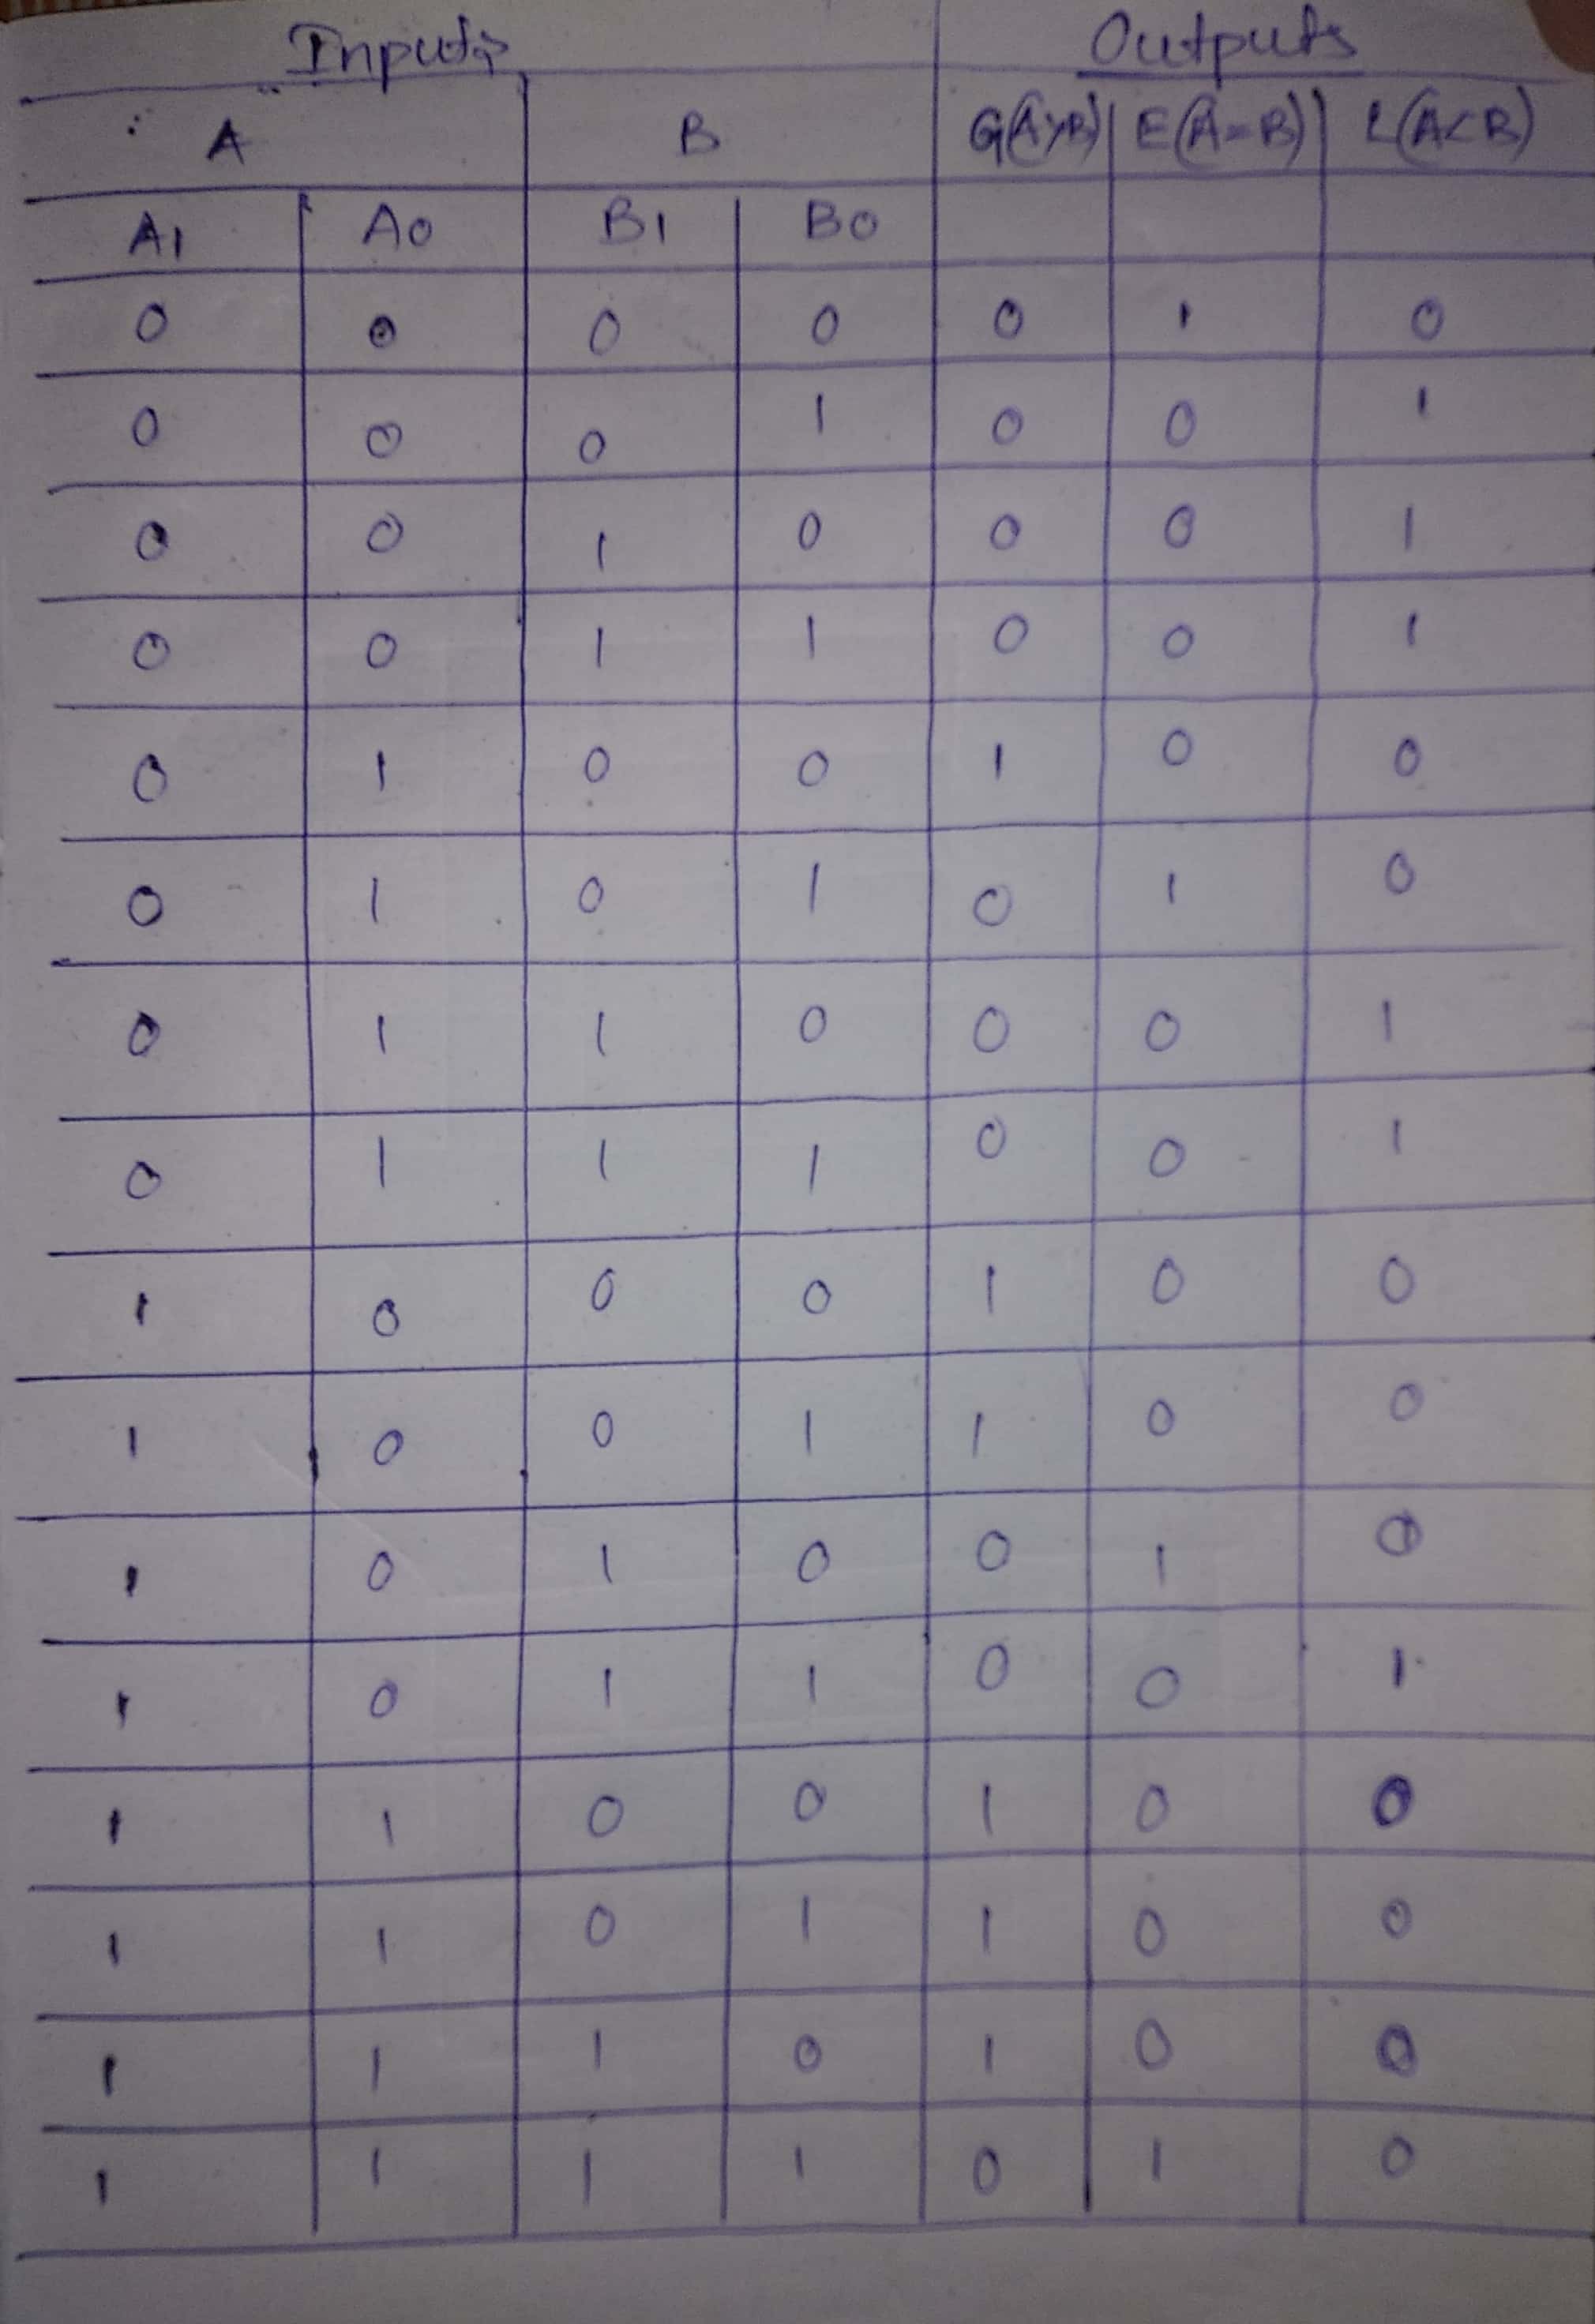 Inputs Outputs
A B G(A>B) E(A=B) L(A<B)
A1 A0 B1 B0
0 0 0 0 0 1 0
0 0 0 1 0 0 1
0 0 1 0 0 0 1
0 0 1 1 0 0 1
0 1 0 0 1 0 0
0 1 0 1 0 1 0
0 1 1 0 0 0 1
0 1 1 1 0 0 1
1 0 0 0 1 0 0
1 0 0 1 1 0 0
1 0 1 0 0 1 0
1 0 1 1 0 0 1
1 1 0 0 1 0 0
1 1 0 1 1 0 0
1 1 1 0 1 0 0
1 1 1 1 0 1 0